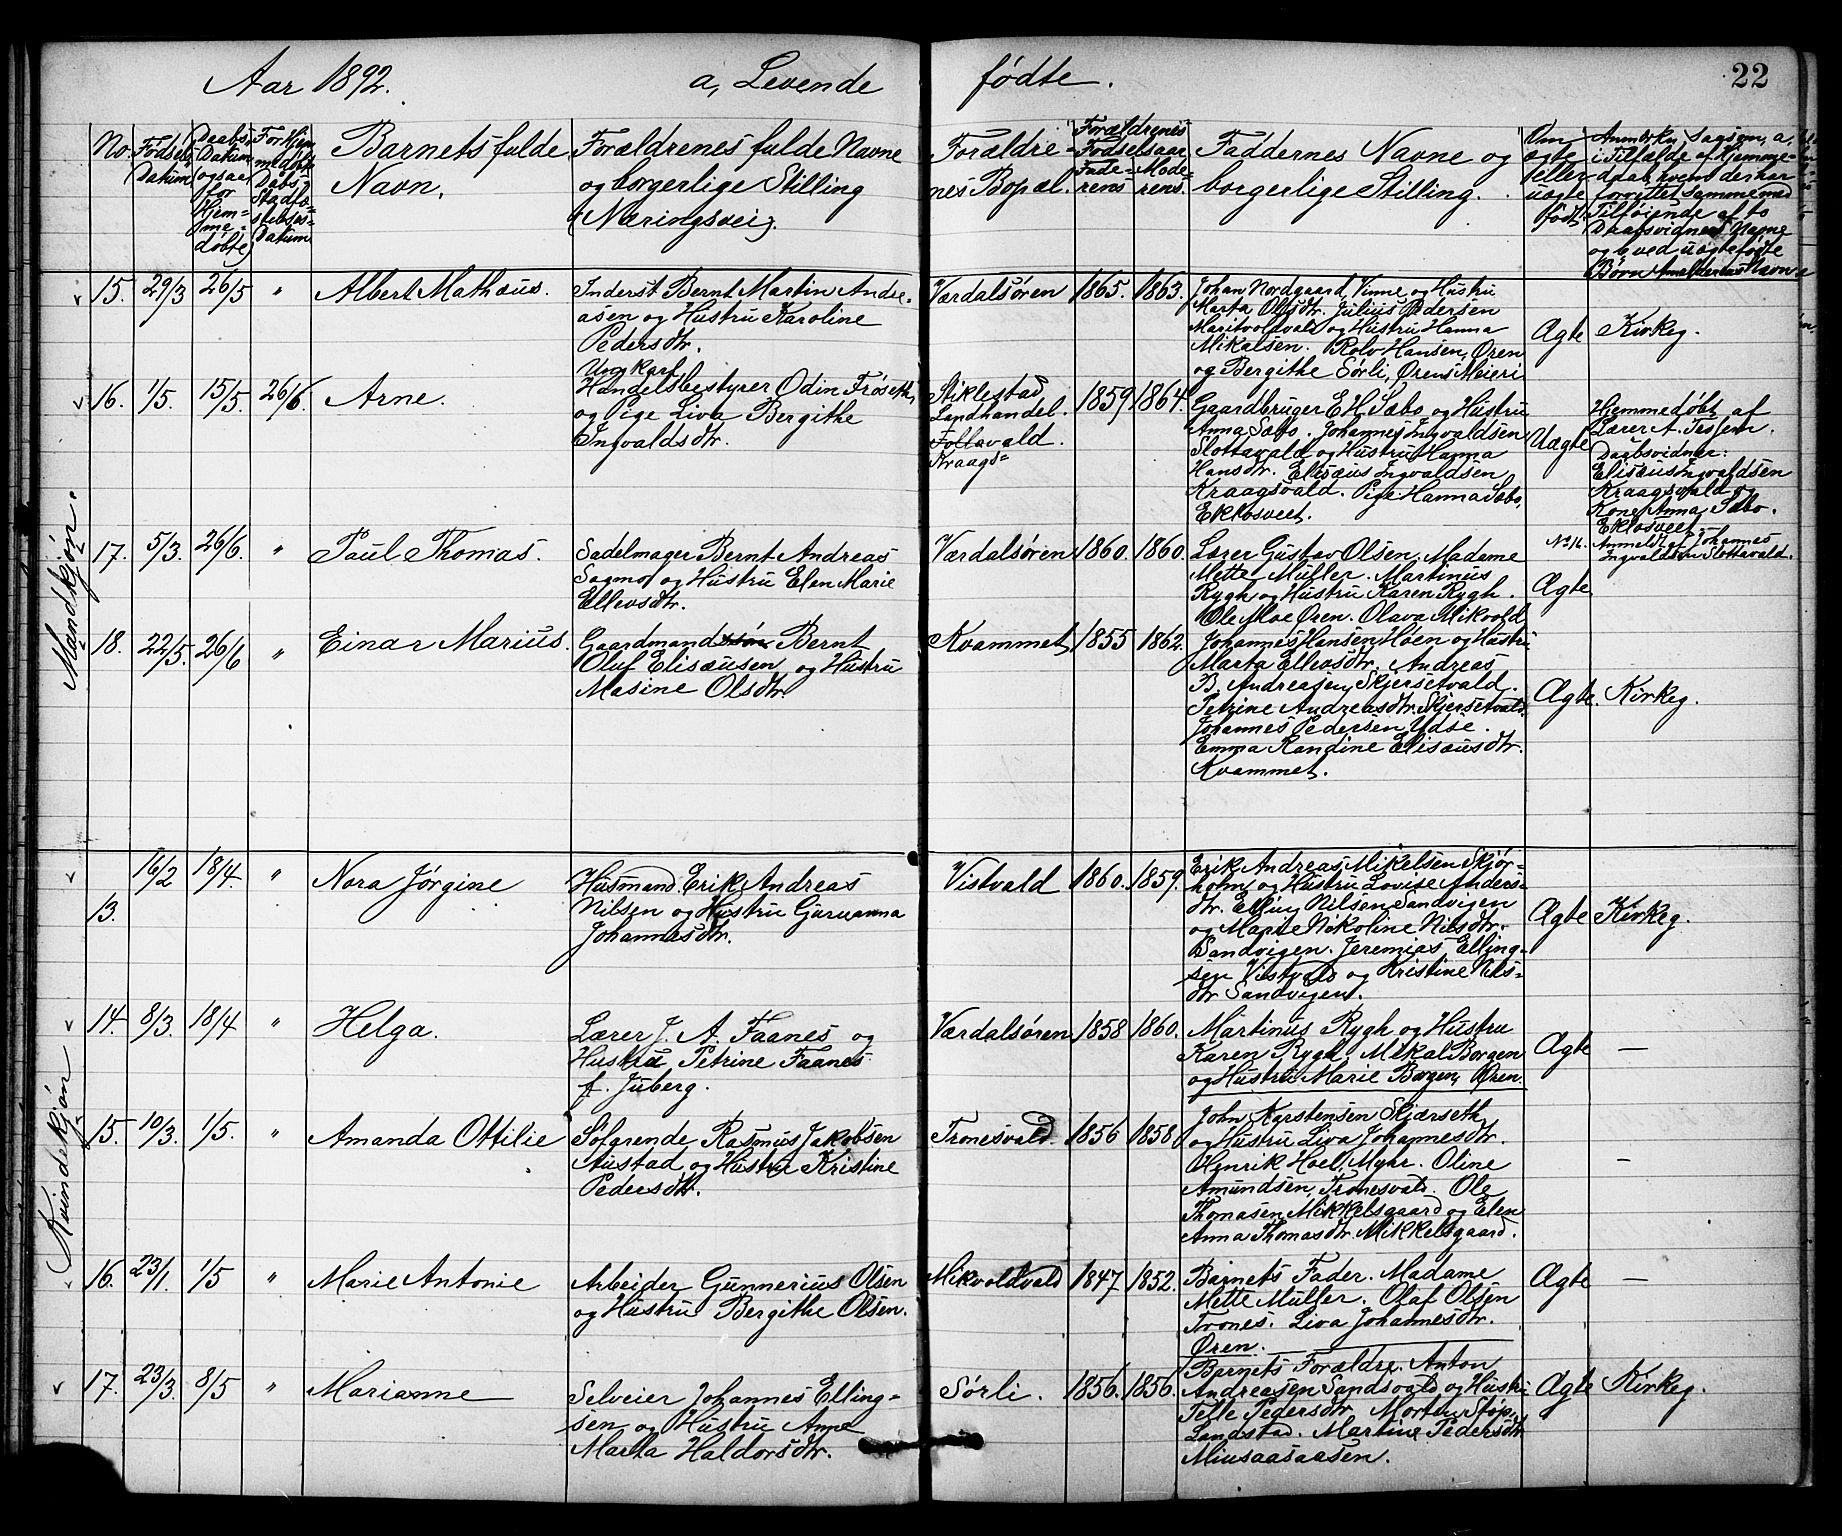 Aar 1892. a, Levende fødte. 22
No. Fødsels Datum. Daabs Datum ogsaa for Hjemmedøbte Barnets fulde Navn. Forældrenes fulde Navne og borgerlige Stilling (Næringsvei). Forældrenes Bopæl. Forældrenes Fødselsaar Faderens Moderens. Faddernes Navne og borgerlige Stilling. Om ægte eller uægte født.
Mandkjøn.
15. 29/3 26/5 " Albert Mathæus. Inderst Bernt Martin Andre-
asen og Hustru Karoline
Pedersdtr. Værdalsøren 1865. 1863. Johan Nordgaard, Vinne og Hustru
Marta Olsdtr. Julius Pedersen
Maritvoldvald og Hustru Hanna
Mikalsen. Rolv Hansen, Øren
og Bergithe Sørli, Ørens Meieri Ægte Kirkeg.
16. 1/5. 15/5. 26/6. Arne. Ungkarl
Handelsbestyrer Odin Frøseth,
og Pige Liva Bergithe
Ingvaldsdtr. Stiklestad
Landhandel.
Follavald.
Kraags= 1859 1864. Gaardbruger E H Sæbo og Hustru
Anna Sæbo. Johannes Ingvaldsen
Slottavald og Hustru Hanna
Hansdtr. Elisæus Ingvaldsen
Kraagsvald. Pige Hanna Sæbo,
Eklosveet. Uægte Hjemmedøbt af
Lærer A. Tessem.
Daabsvidner:
Elisæus Ingvaldsen
Kraagsvald og
Kone Anna Sæbo.
Eklosveet.
No 16. Anmeldt af Johannes
Ingvaldsen Slottavald.
17. 5/3. 26/6. " Paul Thomas. Sadelmager Bernt Andreas
Sagmo og Hustru Elen Marie
Ellevsdtr. Værdalsøren 1860. 1860. Lærer Gustav Olsen, Madame
Mette Müller. Martinus
Rygh og Hustru Karen Rygh.
Ole Moe Øren. Olava Mikvold Ægte
18. 22/5. 26/6 " Einar Marius. Gaardmandssøn Bernt
Oluf Elisæusen og Hustru
Masine Olsdtr Kvammet 1855 1862. Johannes Hansen Høen og Hustru
Marta Ellevsdtr. Andreas
B. Andreasen, Skjersetvald.
Petrine Andreasdtr. Skjersetvald.
Johannes Pedersen Ydse.
Emma Randine Elisæusdtr.
Kvammet. Ægte. Kirkeg.
Kvindekjøn
13. 16/2 18/4. " Nora Jørgine Husmand Erik Andreas
Nilsen og Hustru Guruanna
Johannasdtr. Vistvald 1860. 1859. Erik Andreas Mikelsen Skjør-
holm og Hustru Lovise Anders-
dtr. Elling Nilsen Sandvigen
og Marie Nikoline Nilsdtr.
Sandvigen. Jeremias Elling-
sen Vistvald og Kristine Nils-
dtr Sandvigen. Ægte Kirkeg.
14. 8/3. 18/4 " Helga. Lærer J. A. Faanes og
Hustru Petrine Faanes
f. Juberg. Værdalsøren 1858 1860. Martinus Rygh og Hustru
Karen Rygh, Mikal Borgen
og Hustru Marie Borgen, Øren. Ægte —
15. 10/3. 1/5. " Amanda Ottilie Søfgrende Rasmus Jakobsen
Austad og Hustru Kristine
Pedersdtr. Tronesvald. 1856 1858. John Karstensen Skjærseth
og Hustru Liva Johannesdtr.
Henrik Hoel, Myhr. Oline
Amundsen, Tronesvald. Ole
Thomasen Mikkelsgaard og Elen
Anna Thomasdtr. Mikkelsgaard. —
16. 23/1. 1/5 " Marie Antonie Arbeider Gunnerius Olsen
og Hustru Bergithe Olsen. Mikvoldvald 1847 1852. Barnets Fader. Madame
Mette Müller. Olaf Olsen
Trones. Liva Johannesdtr.
Øren. Ægte —
17. 23/3. 8/5 " Marianne Selveier Johannes Elling=
sen og Hustru Anne
Marta Haldorsdtr. Sørli. 1856. 1856. Barnets Forældre. Anton
Andreasen Sandsvald og Hustru
Telle Pedersdtr. Morten Støp,
Landstad. Martine Pedersdtr
Minsaasaasen. Ægte Kirkeg.